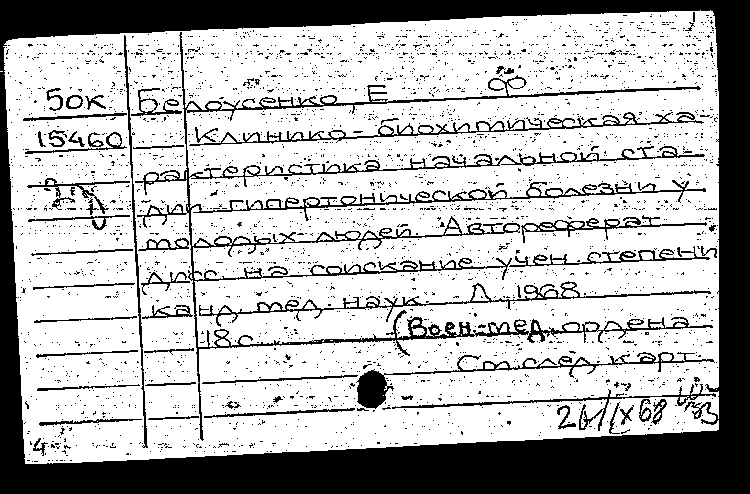 50к Белоусенко, Е
15460 Клинико-биохимическая ха-
рактеристика начальной ста-
дии гипертонической болезни у
молодых людей. Автореферат
дисс на соискание учен степени
канд. мед. наук. Л., 1968.
18с. (Воен.-мед. ордена
См. след. карт.
26/IX 68
4